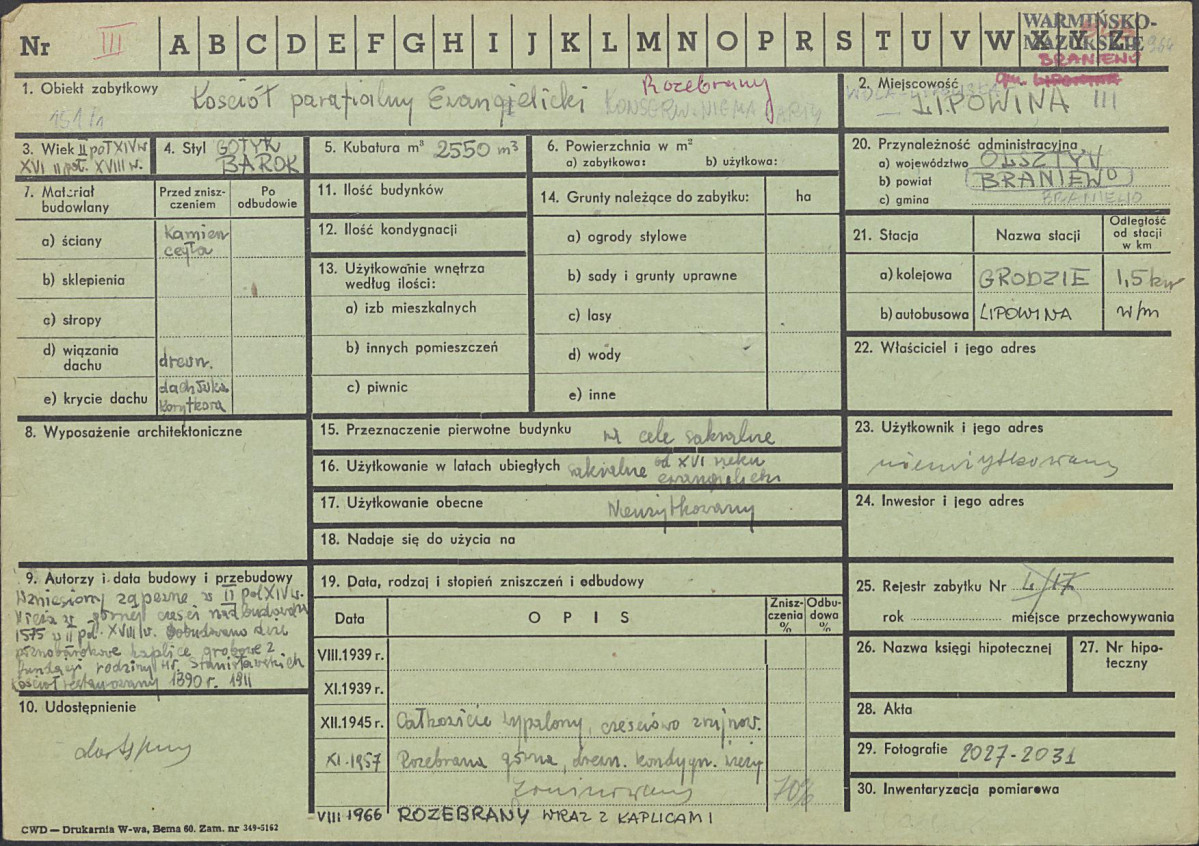 Nr III A B C D E F G H I J K L M N O P R S T U V W X Y Z
WARMIŃSKO-
MAZURSKIE
BRANIEWO
gm. LIPOWINA
1. Obiekt zabytkowy Kościół parafialny Ewangielicki Rozebrany
KONSERW. NIEMA KARTY
2. Miejscowość LIPOWINA III
3. Wiek II poł XIV w
XVI II poł. XVIII w.
4. Styl GOTYK
BAROK
5. Kubatura m³ 2550 m³
6. Powierzchnia w m²
a) zabytkowa: b) użytkowa:
20. Przynależność administracyjna
a) województwo OLSZTYN
b) powiat BRANIEWO
c) gmina BRANIEWO
7. Materiał budowlany
Przed zniszczeniem
Po odbudowie
a) ściany Kamień
cegła
b) sklepienia
c) stropy
d) wiązania dachu drewn.
e) krycie dachu dachówka
korytkowa
11. Ilość budynków
12. Ilość kondygnacji
13. Użytkowanie wnętrza
według ilości:
a) izb mieszkalnych
b) innych pomieszczeń
c) piwnic
14. Grunty należące do zabytku: ha
a) ogrody stylowe
b) sady i grunty uprawne
c) lasy
d) wody
e) inne
21. Stacja Nazwa stacji Odległość
od stacji
w km
a) kolejowa GRODZIE 1,5 km
b) autobusowa LIPOWINA w/m
22. Właściciel i jego adres
8. Wyposażenie architektoniczne
15. Przeznaczenie pierwotne budynku na cele sakralne
16. Użytkowanie w latach ubiegłych sakralne od XVI wieku
ewangielicki
17. Użytkowanie obecne Nieużytkowany
18. Nadaje się do użycia na
23. Użytkownik i jego adres
nieużytkowany
24. Inwestor i jego adres
9. Autorzy i data budowy i przebudowy
Wzniesiony zapewne w II poł XIV w.
Wieża w górnej części nadbudowana
1575 w II poł. XVIII w. Dobudowano dwie
późnobarokowe kaplice grobowe z
fundacji rodziny Hr. Stanisławskich
Kościół restaurowany 1890 r. 1911
10. Udostępnienie
dostępny
19. Data, rodzaj i stopień zniszczeń i odbudowy
Data OPIS Zniszczenia % Odbudowa %
VIII.1939 r.
XI.1939 r.
XII.1945 r. Całkowicie wypalony, częściowo zrujnow.
XI.1957 Rozebrana górna, drewn. kondygn. wieży
zrujnowany 70%
VIII 1966 ROZEBRANY WRAZ Z KAPLICAMI
25. Rejestr zabytku Nr 4/17
rok miejsce przechowywania
26. Nazwa księgi hipotecznej
27. Nr hipoteczny
28. Akta
29. Fotografie 2027-2031
30. Inwentaryzacja pomiarowa
CWD — Drukarnia W-wa, Bema 60. Zam. nr 349-5162